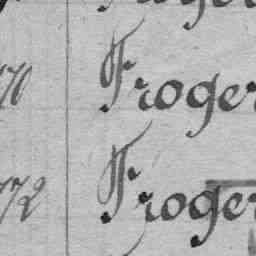 70 Froger
72 Froger